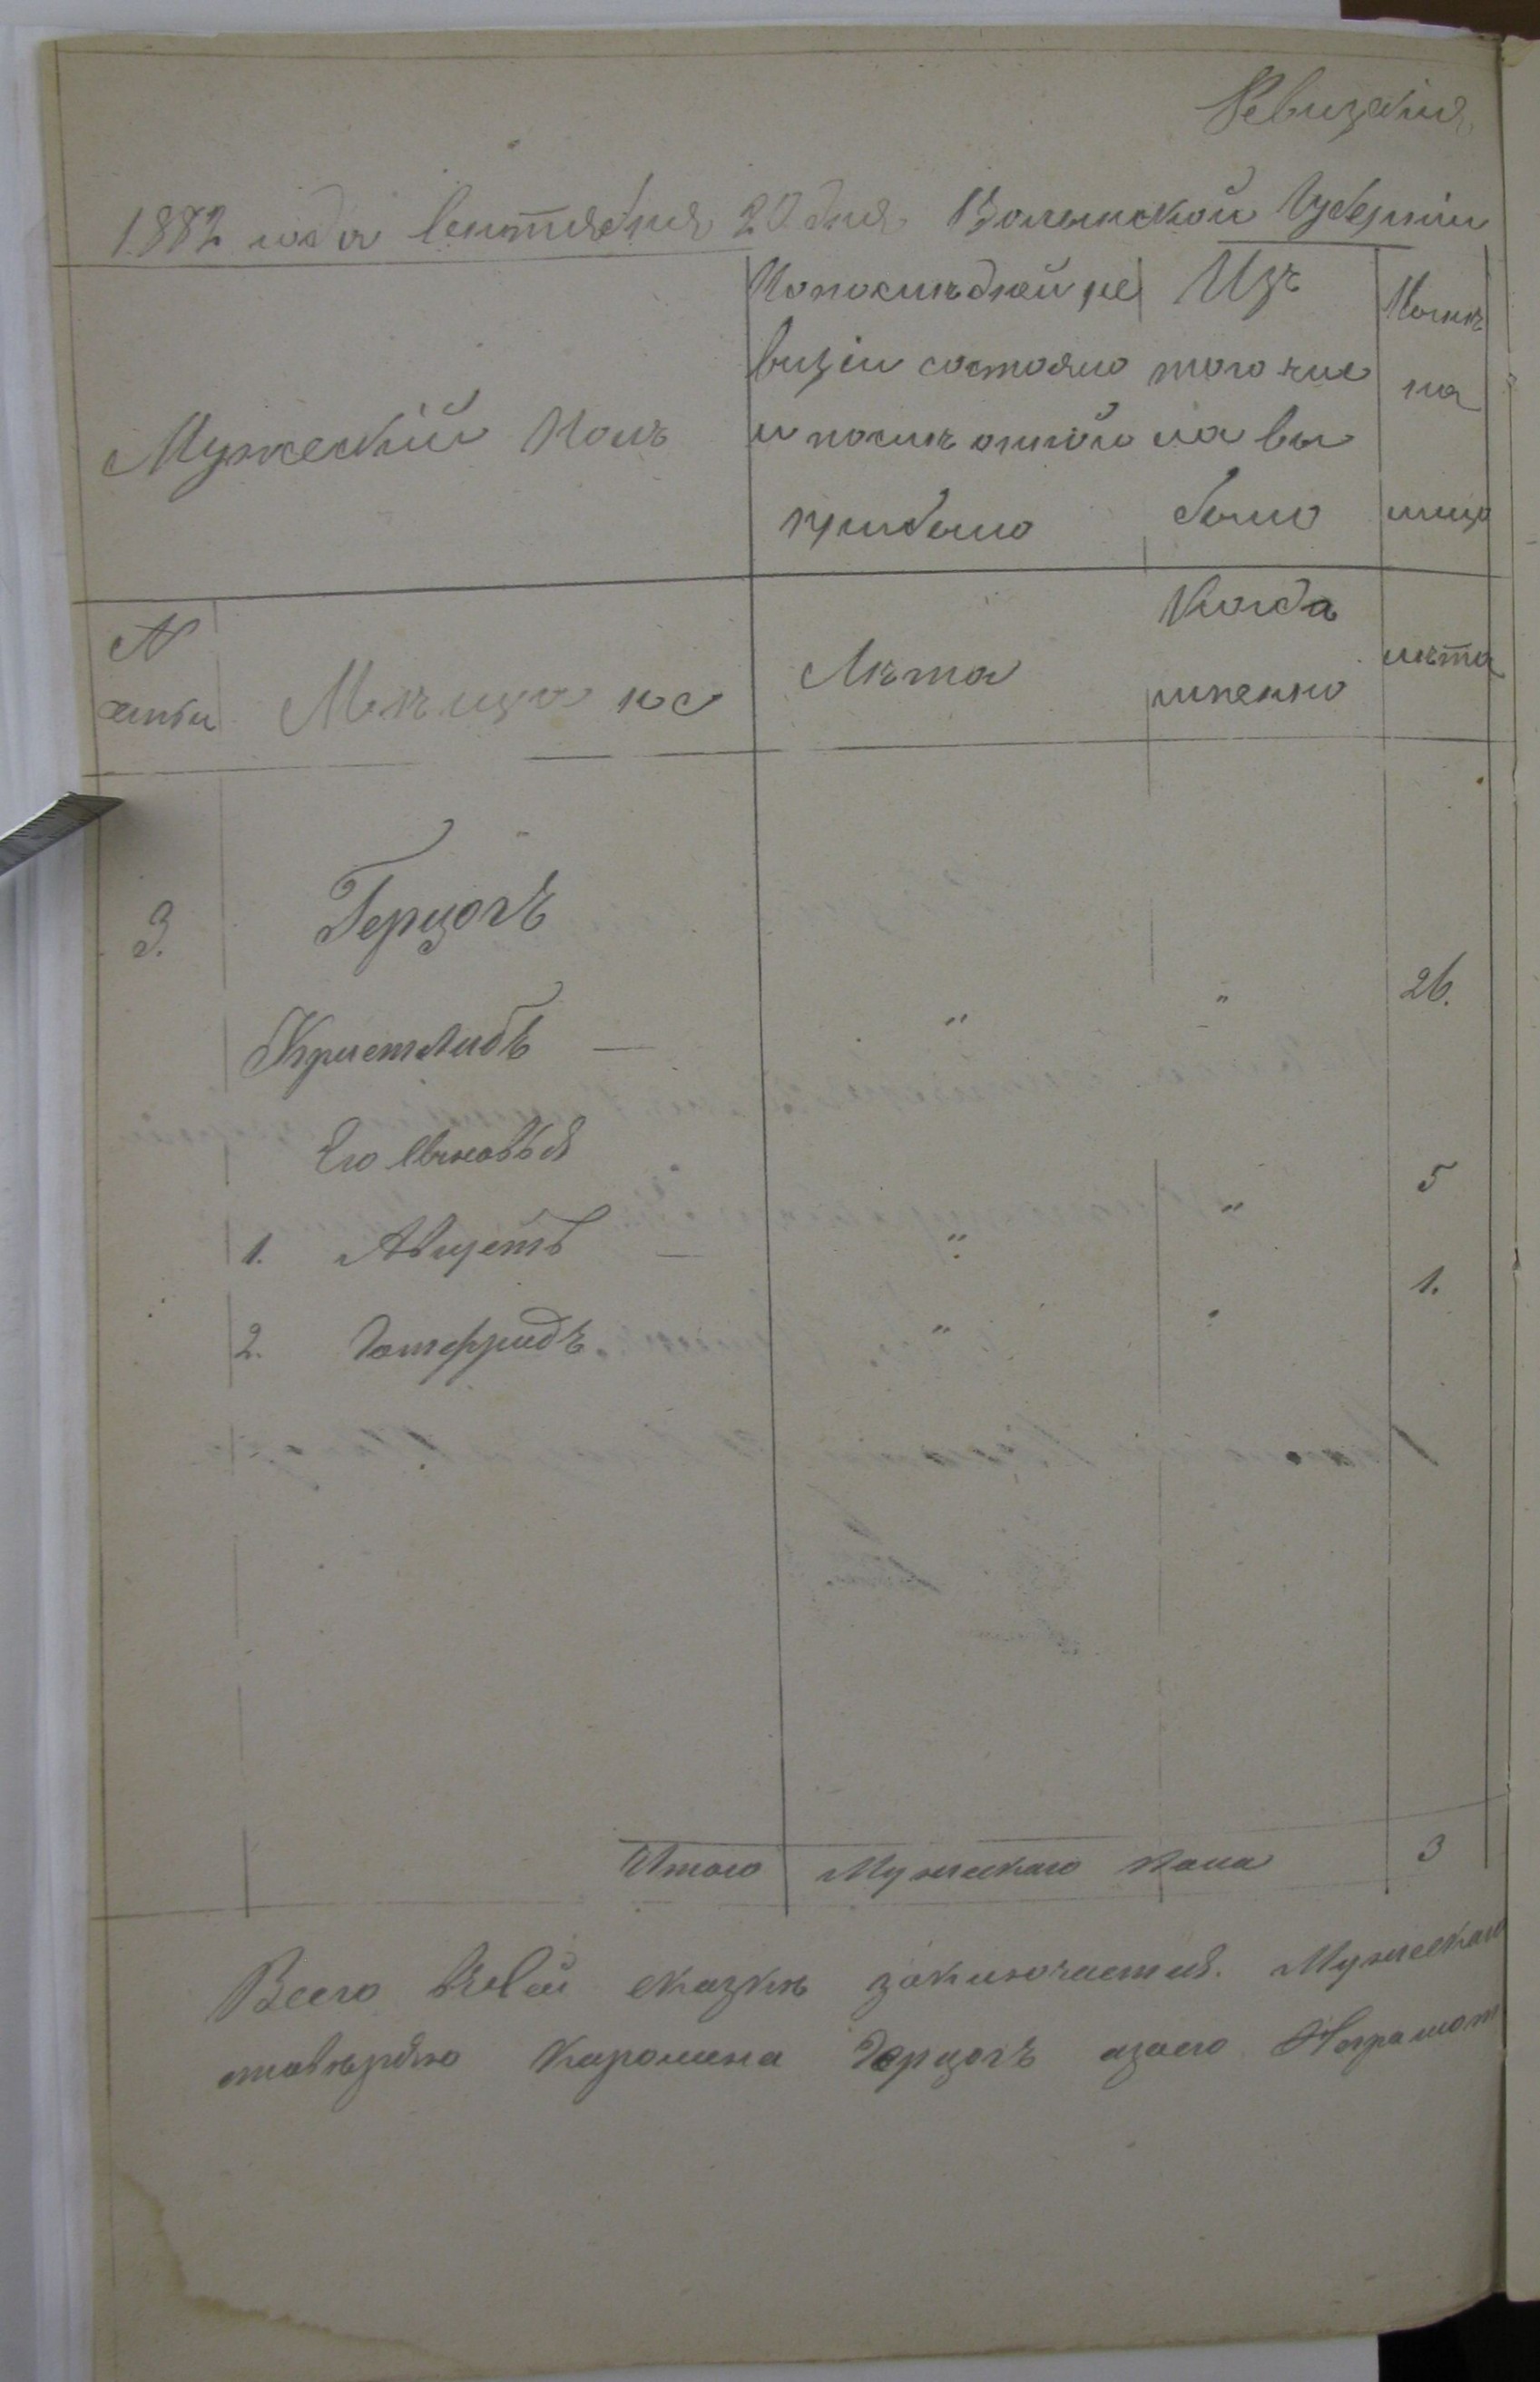 Ревизская
1882 года Сентября 20 дня Волынской Губерніи
Мужескій Полъ
Попослѣдней ре
визіи состояло
и послѣ оной
прибыло
Изъ
того чис
ла вы
было
Нынѣ
на
лицо
N
семьи
Мѣщане
Лѣта
Когда
именно
лѣта
3. Герцогъ
Кристлибъ — " " 26.
Его Сыновья
1. Августъ — " " 5
2. Готфридъ. " " 1.
Итого Мужескаго пола 3
Всего въ сей сказкѣ заключается. Мужескаго
Каролина Герцогъ азаею Неграмот